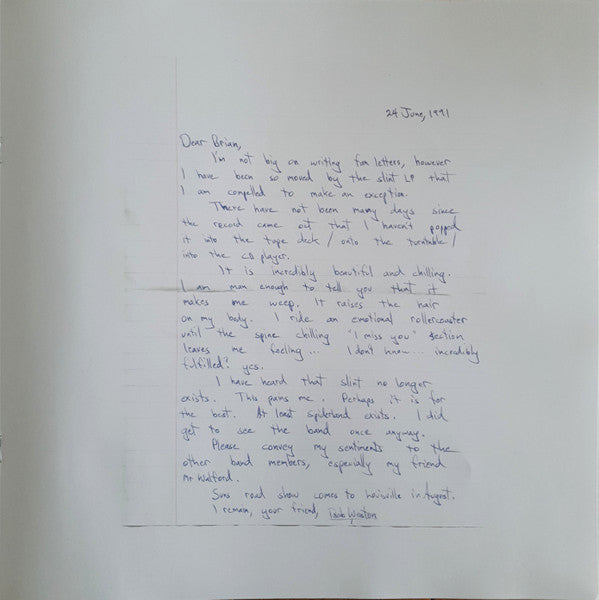 24 June, 1991
Dear Brian,
I'm not big on writing fan letters, however
I have been so moved by the slint LP that
I am compelled to make an exception.
There have not been many days since
the record came out that I haven't popped
it into the tape deck / onto the turntable /
into the CD player.
It is incredibly beautiful and chilling.
I am man enough to tell you that it
makes me weep. It raises the hair
on my body. I ride an emotional rollercoaster
until the spine chilling "I miss you" section
leaves me feeling... I don't know... incredibly
fulfilled? yes.
I have heard that slint no longer
exists. This pains me. Perhaps it is for
the best. At least spiderland exists. I did
get to see the band once anyway.
Please convey my sentiments to the
other band members, especially my friend
Mr Walford.
Suns road show comes to Louisville in August.
I remain, your friend, Bob Weston